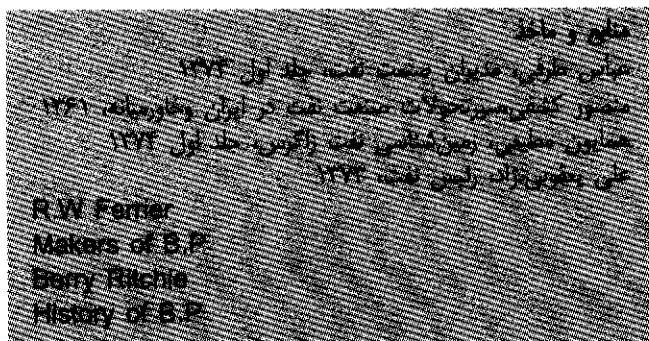 منابع و ماخذ
عباس طرفی، مدیران صنعت نفت، جلد اول ۱۳۷۳
منصور کشفی،سیرتحولات صنعت نفت در ایران وخاورمیانه، ۱۳۶۱
همایون مطیعی، زمین‌شناسی نفت زاگرس، جلد اول ۱۳۷۴
علی یعقوبی‌نژاد، رئیس نفت، ۱۳۷۳
R.W Ferrier
Makers of B.P
Berry Ritchie
History of B.P